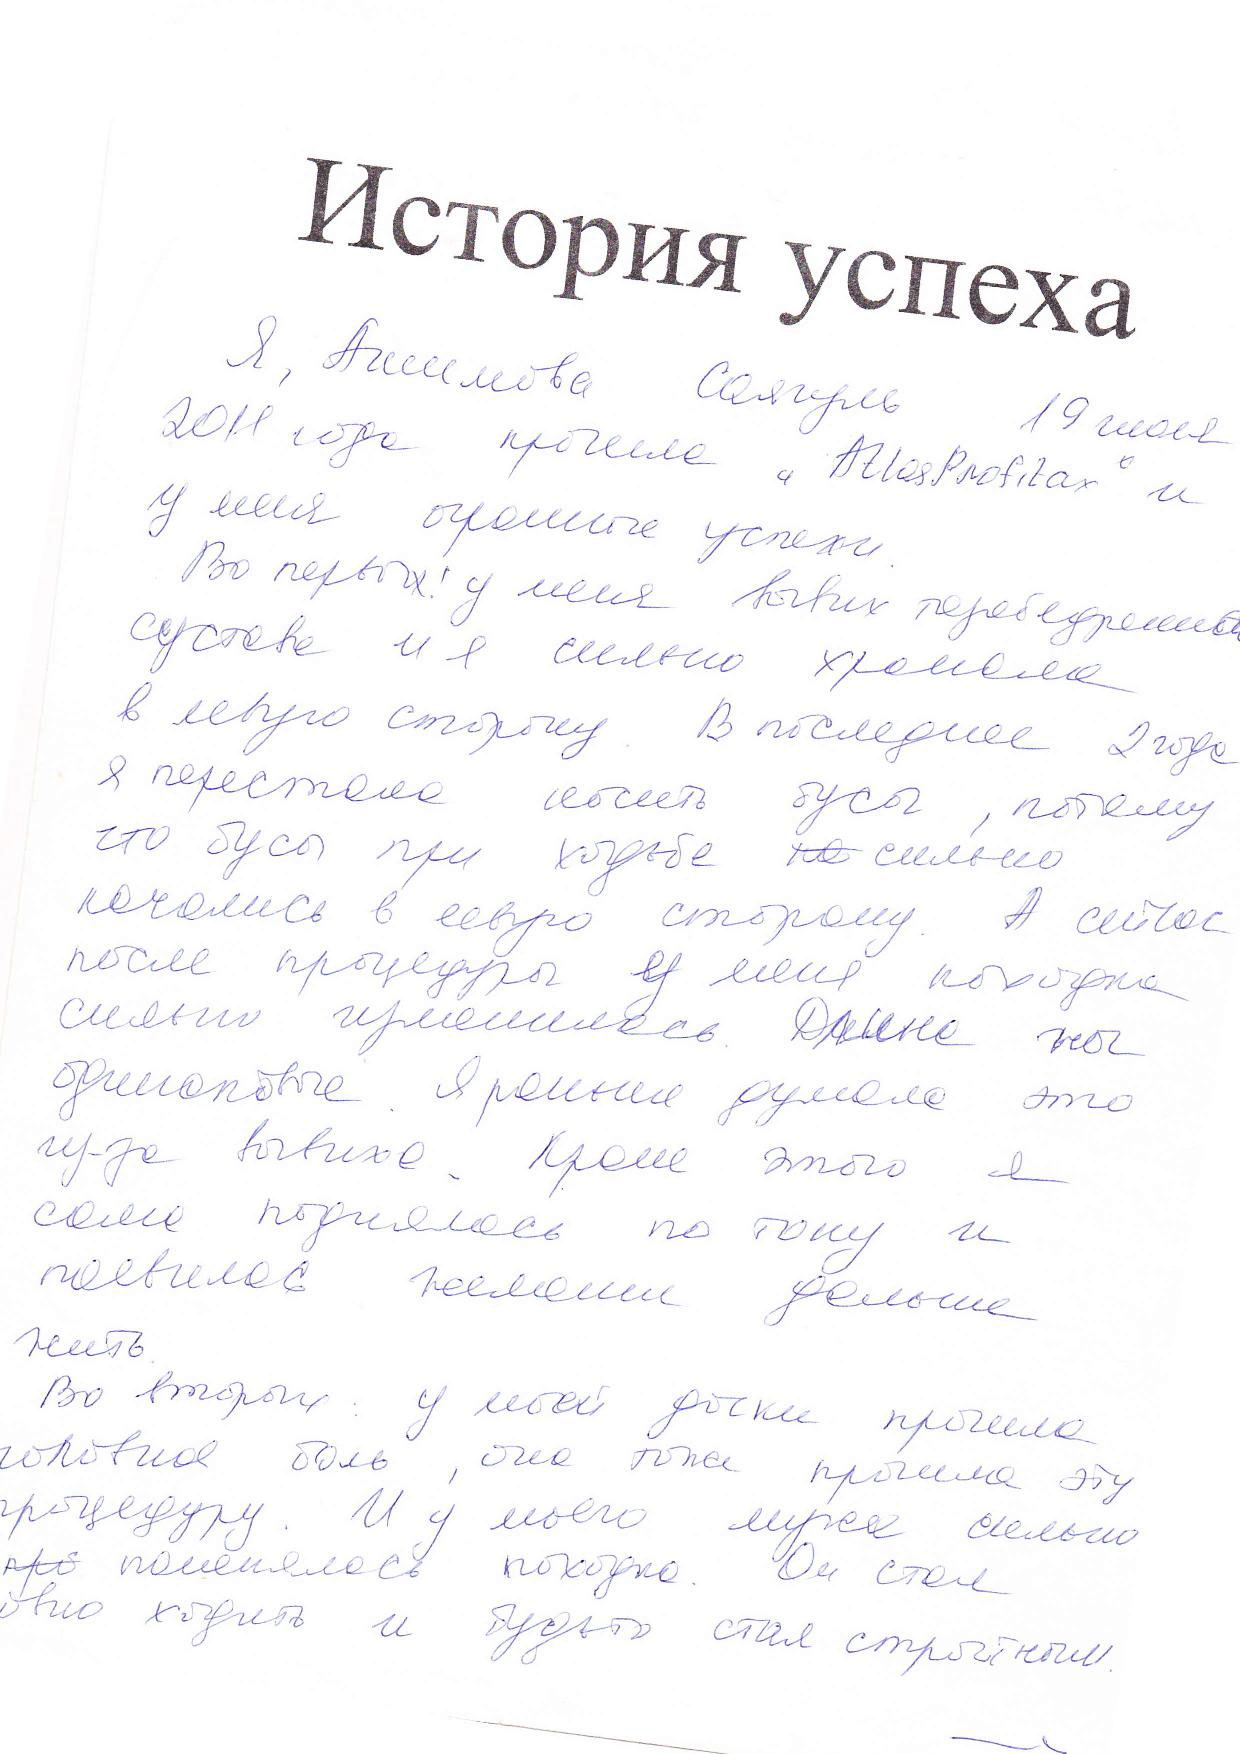 История успеха
Я, Ашимова Саягуль 19 июня
2011 года прошла „AtlasProfilax“ и
у меня огромные успехи.
Во первых! у меня вывих тазобедренного
сустава и я сильно хромала
в левую сторону. В последнее 2 года
я перестала носить бусы, потому
что бусы при ходьбе сильно
качались в левую сторону. А сейчас
после процедуры у меня походка
сильно изменилась. Длина ног
одинаковые. Я раньше думала это
из-за вывиха. Кроме этого я
сама поднялась по тону и
появилась желание дальше
жить.
Во вторых: у моей дочки прошла
головная боль, она тоже прошла эту
процедуру. И у моего мужа сильно
поменялась походка. Он стал
ровно ходить и будьто стал стройным.